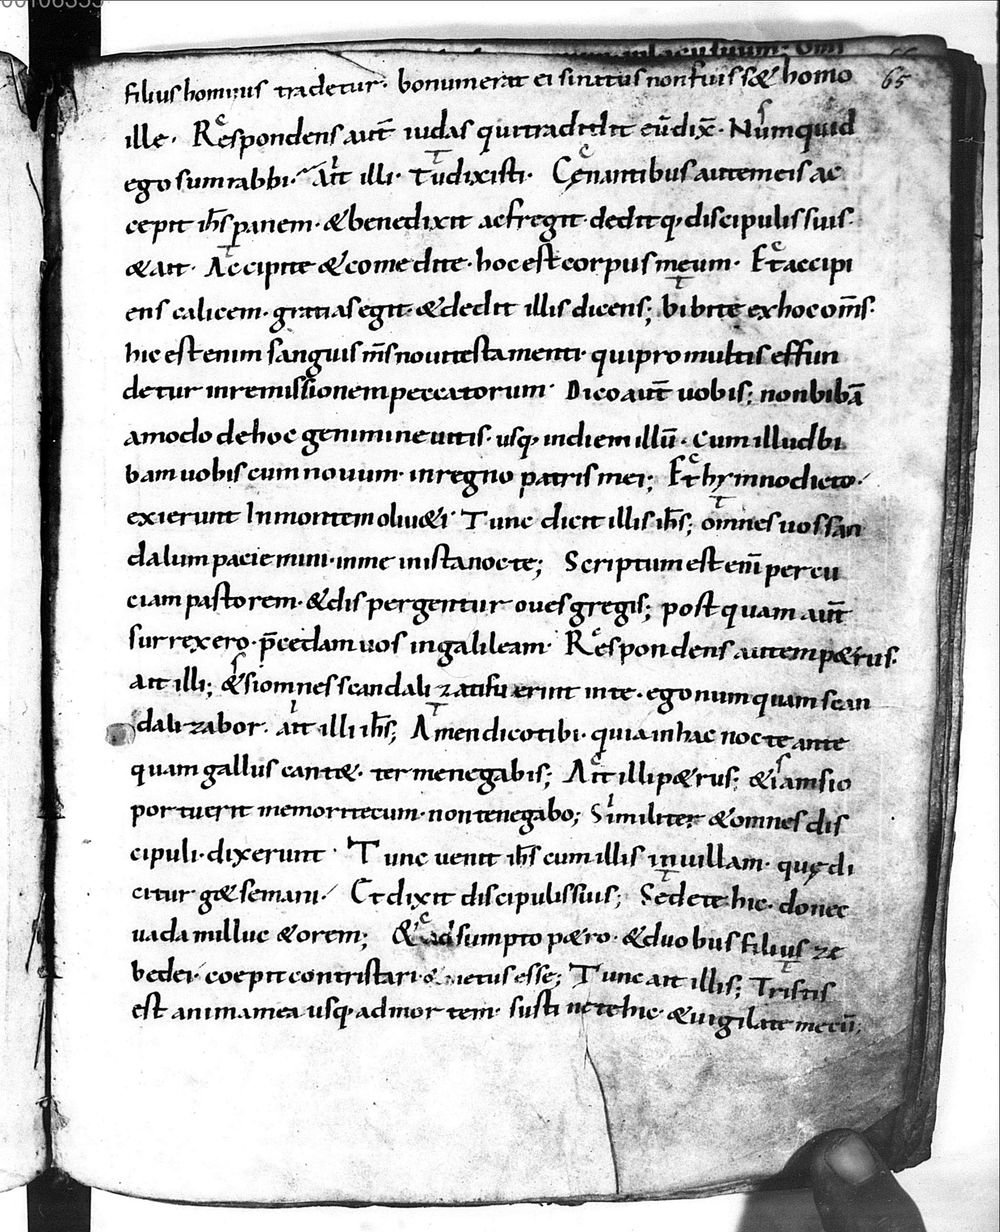 65
filius hominis tradetur· bonum erat ei si natus non fuiss& homo
ille· Respondens aut̄ iudas qui tradidit eū dix̄· Numquid
ego sum rabbi· Ait illi· Tu dixisti· Cęnantibus autem eis ac
cepit ih̄s panem· & benedixit ac fregit· deditq· discipulis suis·
& ait· Accipite & comedite· hoc est corpus meum· Et accipi
ens calicem· gratias egit· & dedit illis dicens; bibite ex hoc om̄s·
hic est enim sanguis m̄s noui testamenti· qui pro multis effun
detur in remissionem peccatorum· Dico aut̄ uobis; non bibā
amodo de hoc genimine uitis· usq· in diem illū· cum illud bi
bam uobiscum nouum· in regno patris mei; Et hymno dicto·
exierunt In montem oliu&i· Tunc dicit illis ih̄s; omnes uos scan
dalum paciemini· in me in ista nocte; Scriptum est enī percu
ciam pastorem· & dispergentur oues gregis; postquam aut̄
surrexero· p̄cedam uos in galileam· Respondens autem p&rus·
ait illi; & si omnes scandalizati fuerint in te· ego numquam scan
dalizabor· ait illi ih̄s; Amen dico tibi· quia in hac nocte ante
quam gallus cant&· ter me negabis; Ait illi p&rus; & iam si o
portuerit me mori tecum· non te negabo; Similiter & omnes dis
cipuli· dixerunt· Tunc uenit ih̄s cum illis in uillam· quę di
citur g&semani· Et dixit discipulis suis; Sedete hic· donec
uadam illuc & orem; & adsumpto p&ro· & duobus filiis ze
bedei· coepit contristari & mestus esse; Tunc ait illis; Tristis
est anima mea usq· ad mortem· sustinete hic· & uigilate mecū;